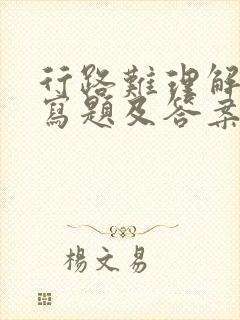 行路難理解
寫題及答案
楊文易